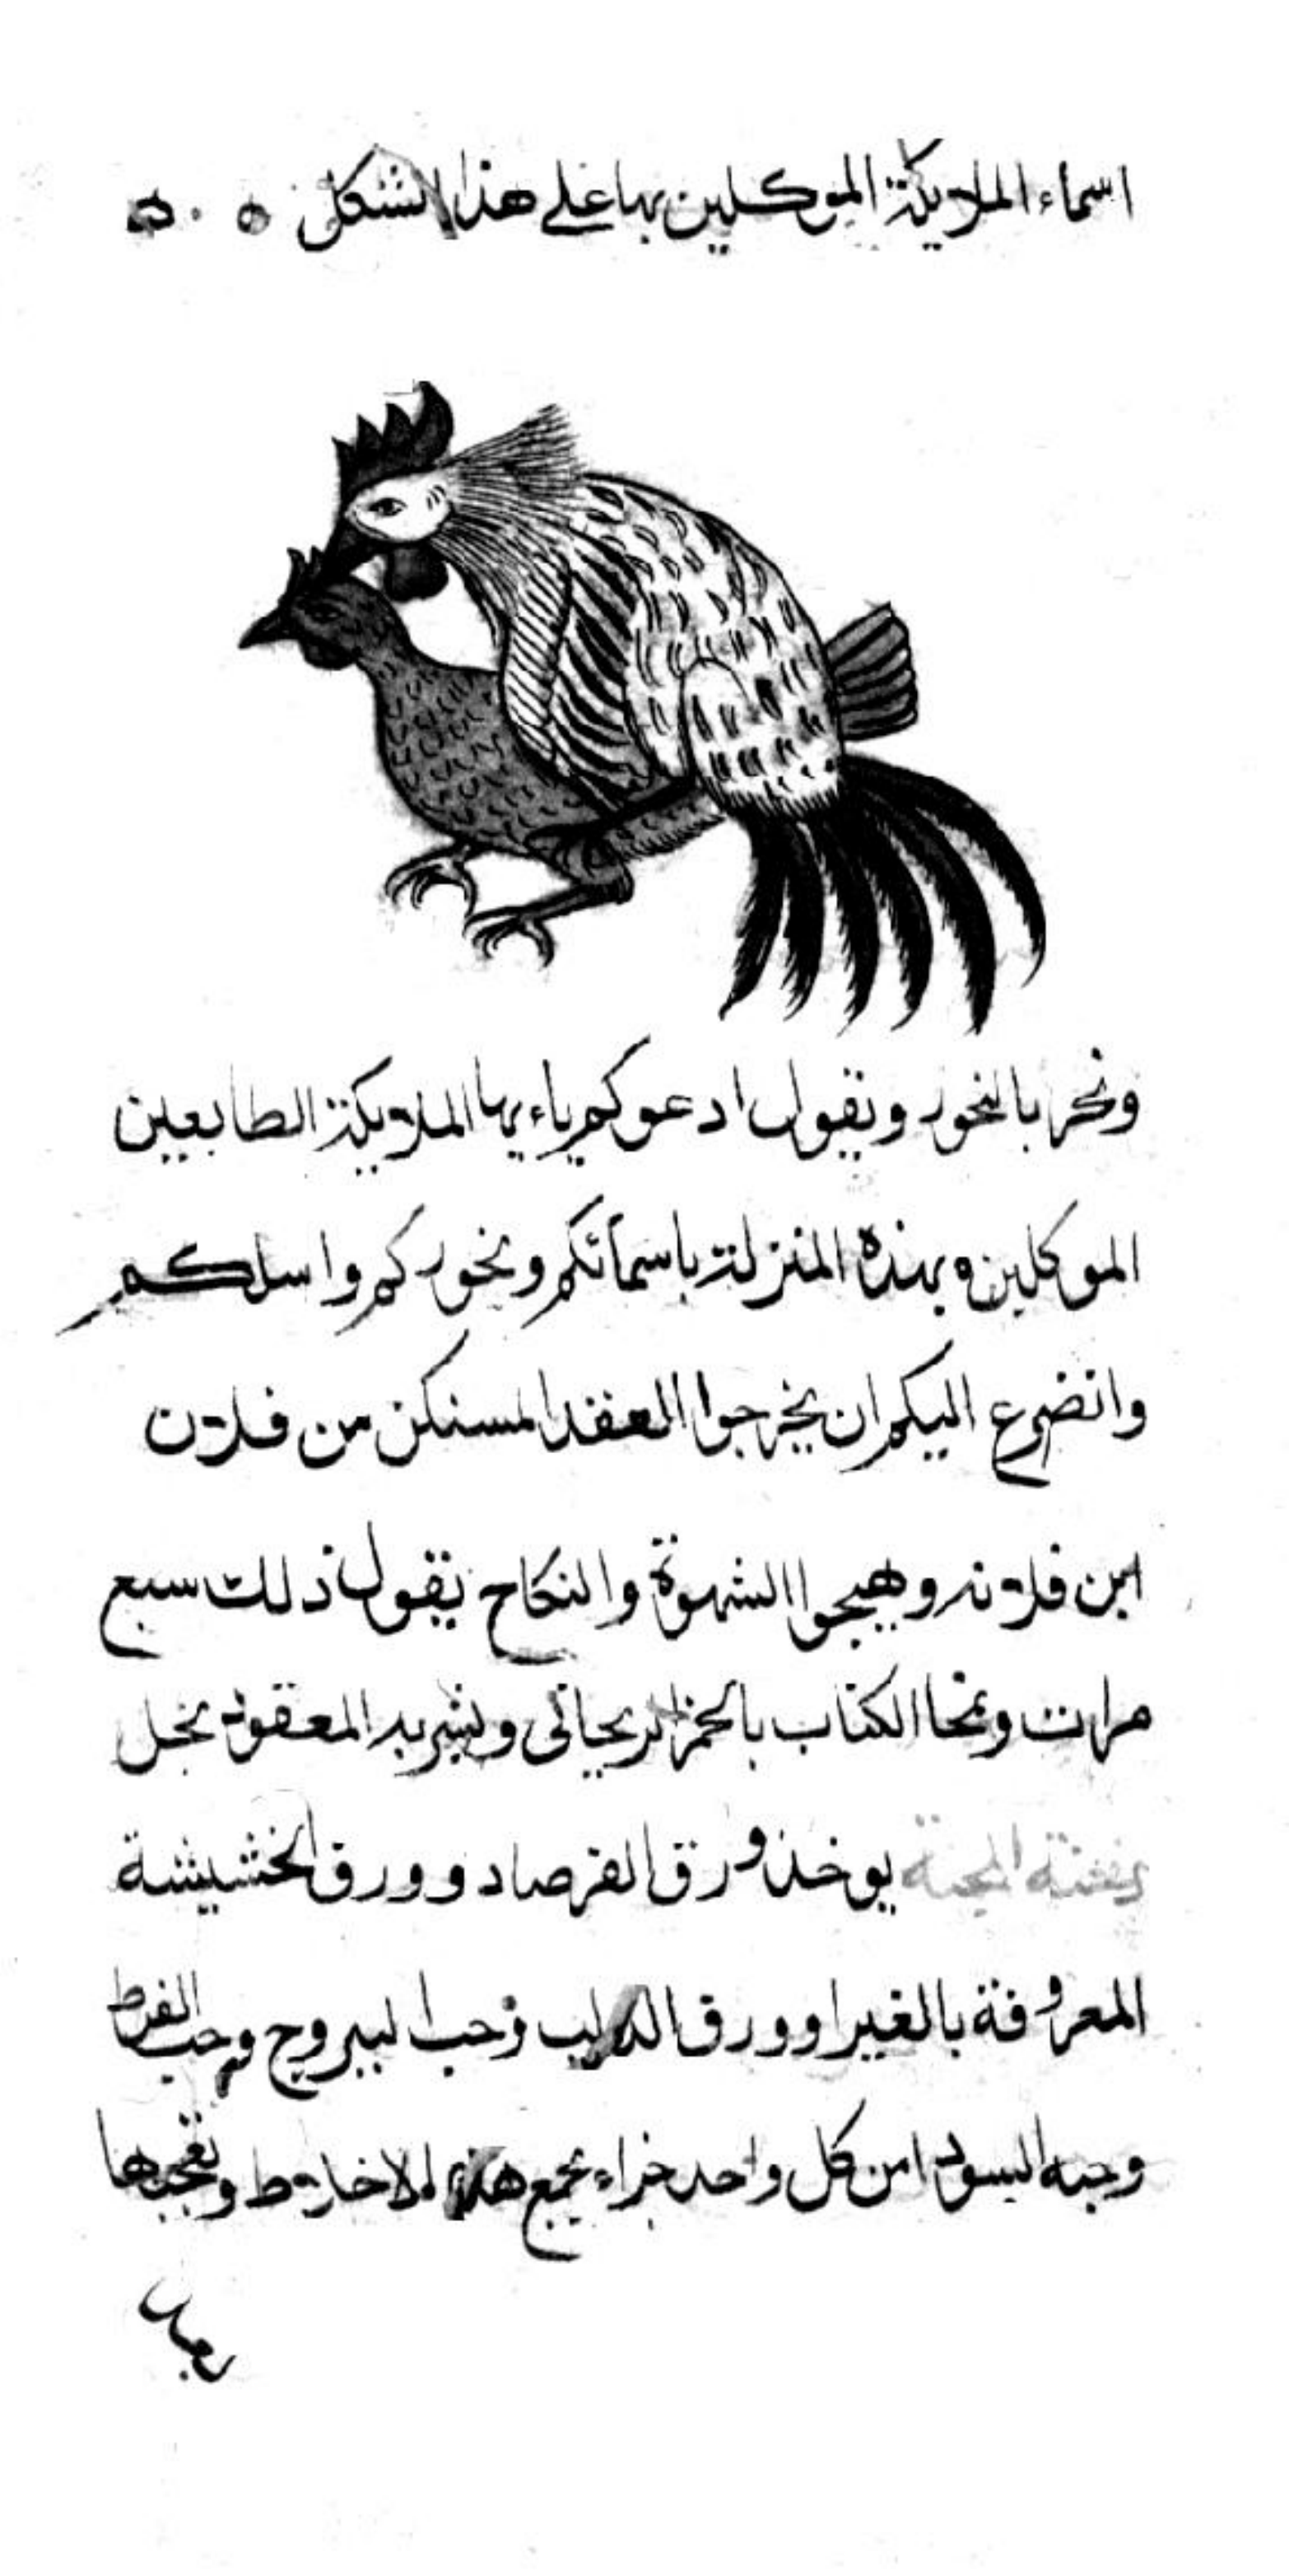 اسماء الملايكة الموكلين بها على هذا الشكل
ونحر بالنحور ونقول ادعوكم ياءيها الملايكة الطابعين
الموكلين بهذه المنزلة باسمائكم ونخوركم واسلكم
واتضرع اليكم ان يخرجوا العقد المستكن من فلان
ابن فلانه وهيجوا الشهوة والنكاح يقول ذلك سبع
مرات ونمحا الكتاب بالخمر الريحاني ونشربه المعقود نحل
المحبة يوخذ ورق الفرصاد وورق الخشيشة
المعروفة بالغبيرا وورق الدلب وحب اليبروح وحب القرط
وحبه السودا من كل واحد جزاء يجمع هذه الاخلاط ونعجنها